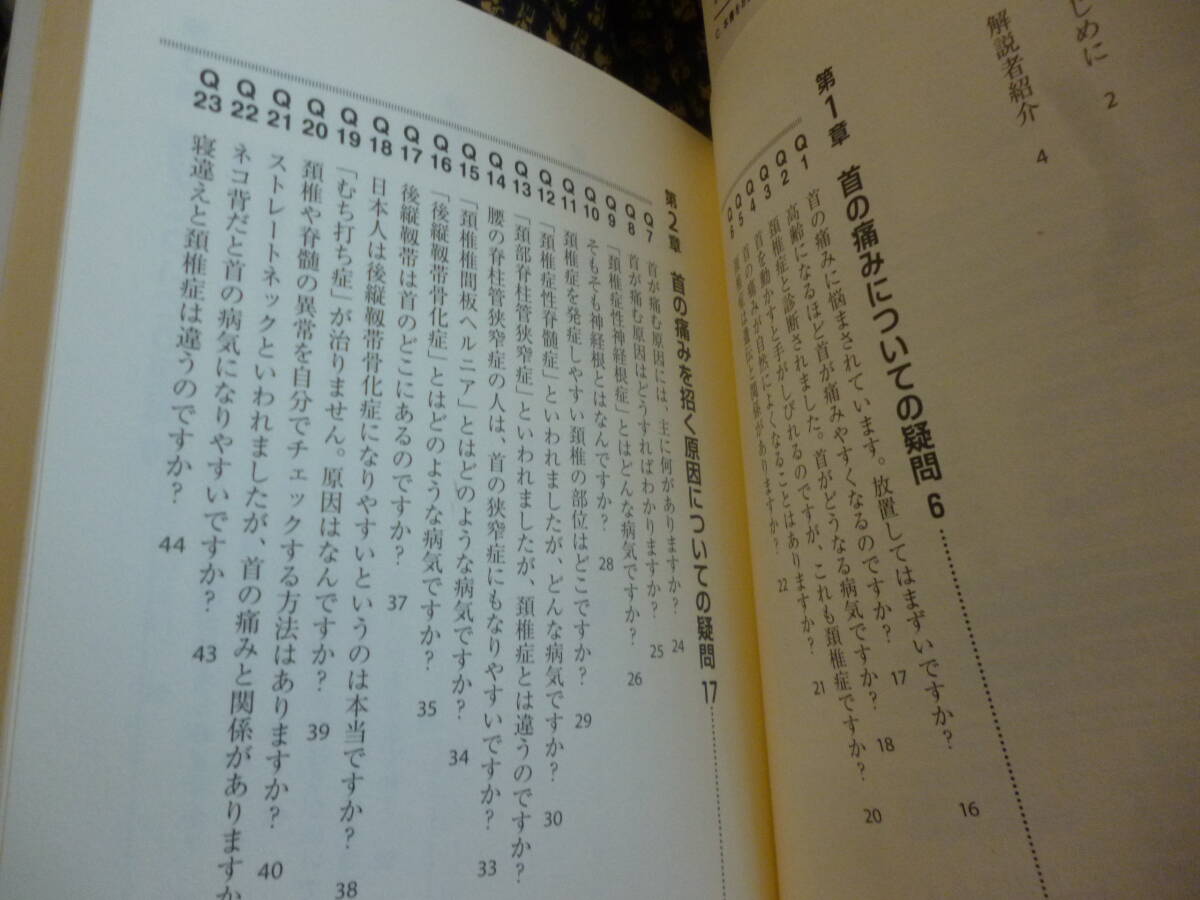 じめに 2
解説者紹介 4
第1章 首の痛みについての疑問 6
Q1 首の痛みに悩まされています。放置してはまずいですか? 16
Q2 高齢になるほど首が痛みやすくなるのですか? 17
Q3 頚椎症と診断されました。首がどうなる病気ですか? 18
Q4 首を動かすと手がしびれるのですが、これも頚椎症ですか? 20
Q5 首の痛みが自然によくなることはありますか? 21
Q6 頚椎症は遺伝と関係がありますか? 22
第2章 首の痛みを招く原因についての疑問 17
Q7 首が痛む原因には、主に何がありますか? 24
Q8 首が痛む原因はどうすればわかりますか? 25
Q9 「頚椎症性神経根症」とはどんな病気ですか? 26
Q10 そもそも神経根とはなんですか? 28
Q11 頚椎症を発症しやすい頚椎の部位はどこですか? 29
Q12 「頚椎症性脊髄症」といわれましたが、どんな病気ですか? 30
Q13 「頚部脊柱管狭窄症」といわれましたが、頚椎症とは違うのですか?
Q14 腰の脊柱管狭窄症の人は、首の狭窄症にもなりやすいですか? 33
Q15 「頚椎椎間板ヘルニア」とはどのような病気ですか? 34
Q16 「後縦靱帯骨化症」とはどのような病気ですか? 35
Q17 後縦靱帯は首のどこにあるのですか? 37
Q18 日本人は後縦靱帯骨化症になりやすいというのは本当ですか? 38
Q19 「むち打ち症」が治りません。原因はなんですか? 39
Q20 頚椎や脊髄の異常を自分でチェックする方法はありますか? 40
Q21 ストレートネックといわれましたが、首の痛みと関係がありますか
Q22 ネコ背だと首の病気になりやすいですか? 43
Q23 寝違えと頚椎症は違うのですか? 44